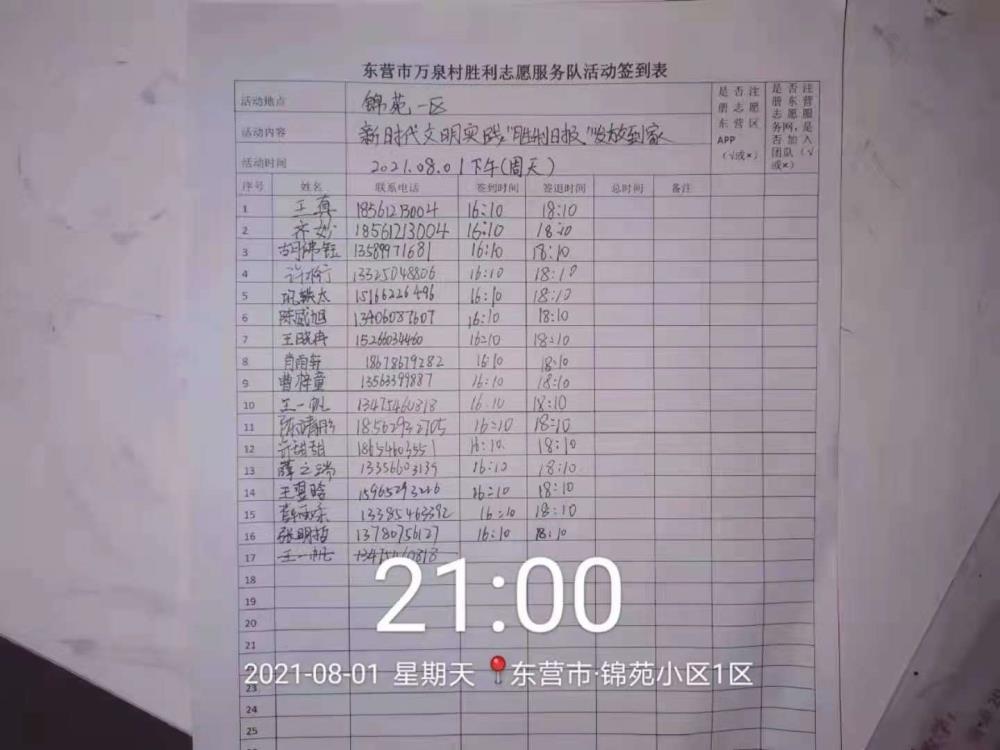 东营市万泉村胜利志愿服务队活动签到表
活动地点 锦苑一区
活动内容 新时代文明实践,"胜利日报"发放到家
活动时间 2021.08.01下午(周天)
是否注册志愿东营区APP(√或×)
是否注册东营志愿服务网,是否加入团队(√或×)
序号 姓名 联系电话 签到时间 签退时间 总时间 备注
1 王真 18561213004 16:10 18:10
2 齐妙 18561213004 16:10 18:10
3 13589971681 16:10 18:10
4 13325048806 16:10 18:10
5 15166226496 16:10 18:10
6 陈威旭 13406087607 16:10 18:10
7 王晓冉 15266034460 16:10 18:10
8 肖雨轩 18678679282 16:10 18:10
9 曹梓童 13563399887 16:10 18:10
10 王一帆 13475460818 16:10 18:10
11 18562932705 16:10 18:10
12 许甜甜 18654603551 16:10 18:10
13 薛之瑞 13356603139 16:10 18:10
14 王翌晗 15965293226 16:10 18:10
15 13385463392 16:10 18:10
16 张明哲 13780756127 16:10 18:10
17 王一帆 13475460818
18
19
20
21
21:00
2021-08-01 星期天 东营市·锦苑小区1区
23
24
25